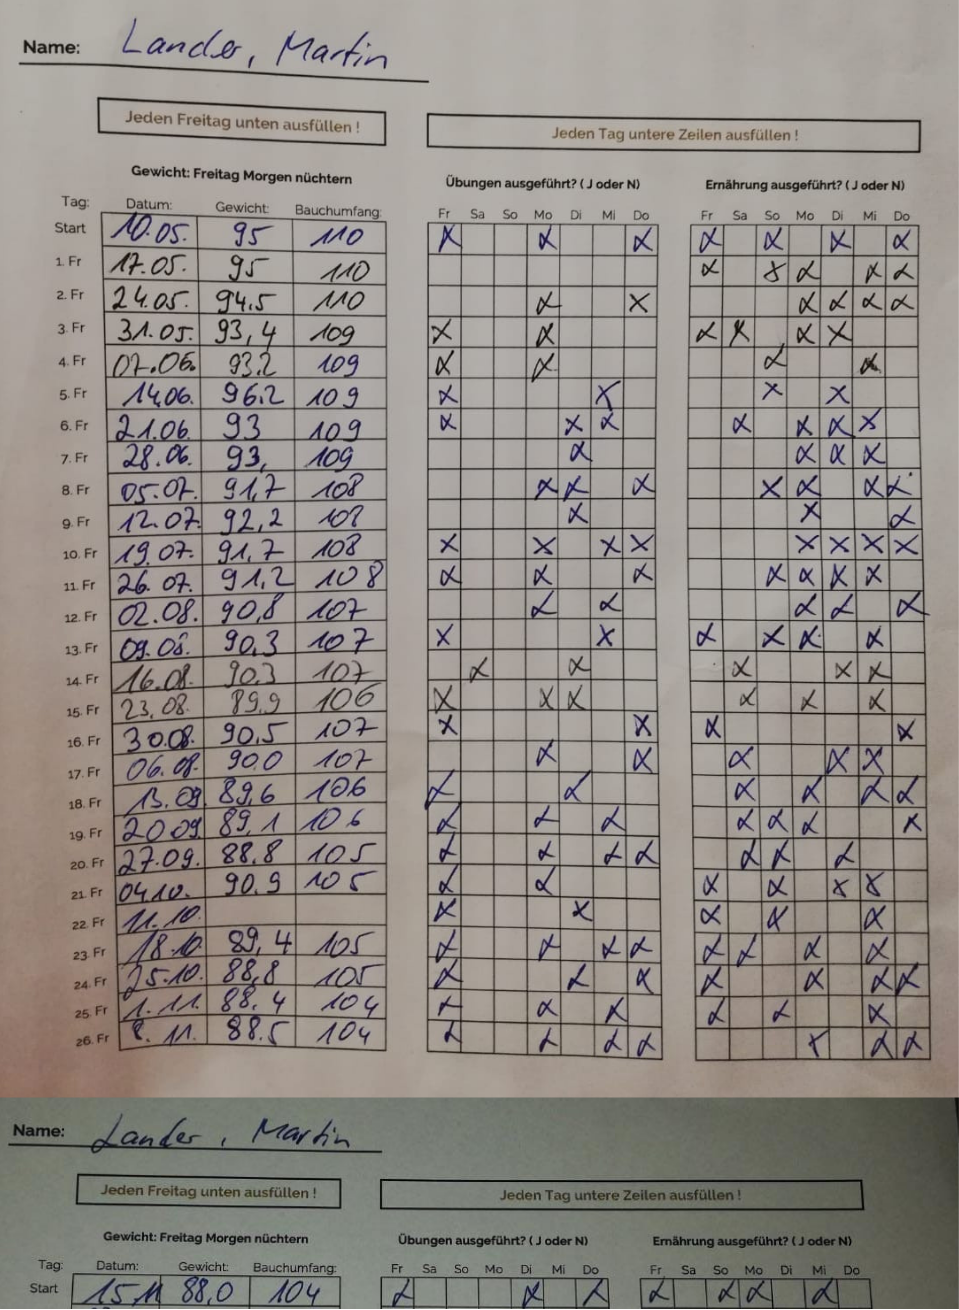 Name: Lander, Martin
Jeden Freitag unten ausfüllen !
Jeden Tag untere Zeilen ausfüllen !
Gewicht: Freitag Morgen nüchtern
Übungen ausgeführt? ( J oder N) Ernährung ausgeführt? ( J oder N)
Tag: Datum: Gewicht: Bauchumfang: Fr Sa So Mo Di Mi Do Fr Sa So Mo Di Mi Do
Start 10.05. 95 110 x x x x x x x
1. Fr 17.05. 95 110 x x x x x
2. Fr 24.05. 94,5 110 x x x x x x
3. Fr 31.05. 93,4 109 x x x x x x
4. Fr 07.06. 93.2 109 x x x x
5. Fr 14.06. 96.2 109 x x x x
6. Fr 21.06. 93 109 x x x x x x x
7. Fr 28.06. 93, 109 x x x x
8. Fr 05.07. 91,7 108 x x x x x x x
9. Fr 12.07. 92,2 108 x x x
10. Fr 19.07. 91,7 108 x x x x x x x x
11. Fr 26.07. 91,2 108 x x x x x x x
12. Fr 02.08. 90,8 107 x x x x x
13. Fr 09.08. 90,3 107 x x x x x x
14. Fr 16.08. 90,3 107 x x x x x
15. Fr 23.08. 89,9 106 x x x x x x
16. Fr 30.08. 90,5 107 x x x x
17. Fr 06.08. 90,0 107 x x x x x
18. Fr 13.09 89,6 106 x x x x x x
19. Fr 20.09 89,1 106 x x x x x x x
20. Fr 27.09. 88.8 105 x x x x x x x
21. Fr 04.10. 90.9 105 x x x x x x
22. Fr 11.10. x x x x x
23. Fr 18.10. 89,4 105 x x x x x x x x
24. Fr 25.10. 88,8 105 x x x x x x x
25. Fr 1.11. 88.4 104 x x x x x x
26. Fr 8.11. 88.5 104 x x x x x x x
Name: Lander, Martin
Jeden Freitag unten ausfüllen !
Jeden Tag untere Zeilen ausfüllen !
Gewicht: Freitag Morgen nüchtern
Übungen ausgeführt? ( J oder N) Ernährung ausgeführt? ( J oder N)
Tag: Datum: Gewicht: Bauchumfang: Fr Sa So Mo Di Mi Do Fr Sa So Mo Di Mi Do
Start 15.11 88,0 104 x x x x x x x